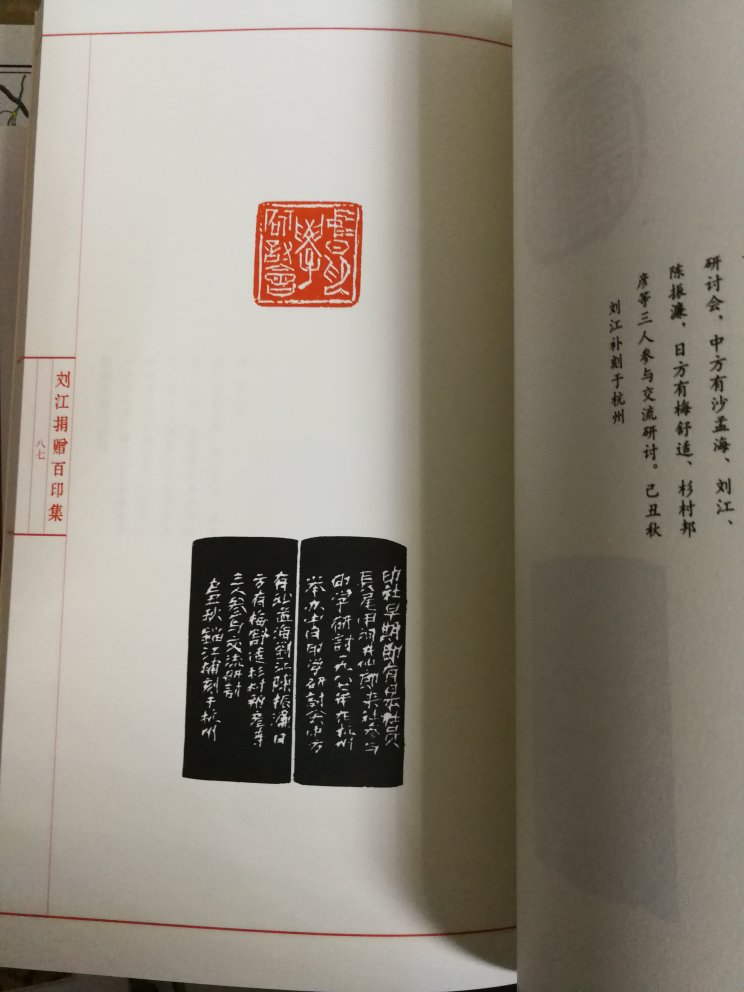 研讨会，中方有沙孟海、刘江、
陈振濂，日方有梅舒适、杉村邦
彦等三人参与交流研讨。己丑秋
刘江补刻于杭州
學
研討會
印社早期即有日本社员
長尾甲河井仙郎来社参与
印学研討一九八年在杭州
举办中日印学研討会中方
有沙孟海劉江陳振濂日
方有梅舒适杉村邦彦等
三人参与交流研討
己丑秋劉江補刻于杭州
刘江捐赠百印集
八七